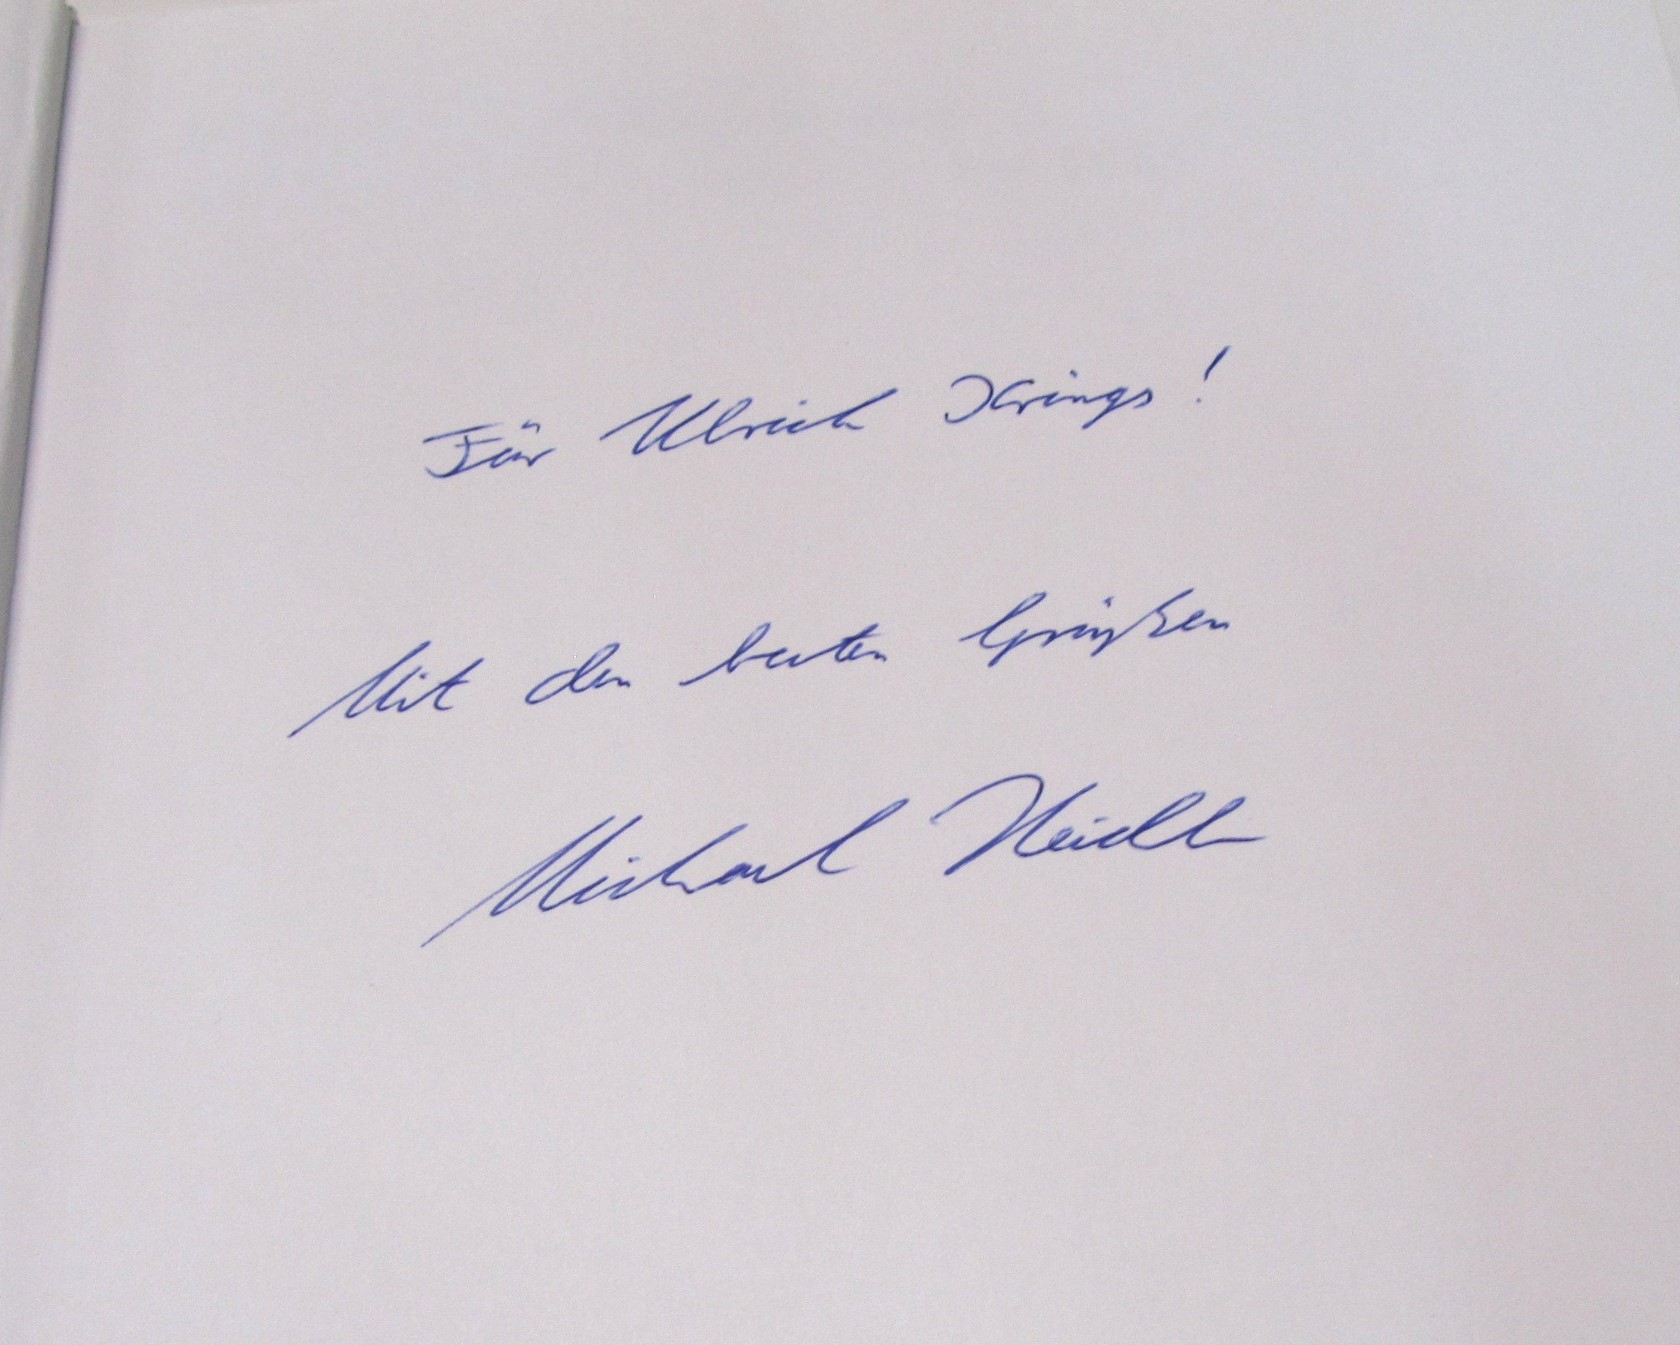 Für Ulrich Krings!
Mit den besten Grüßen
Michael